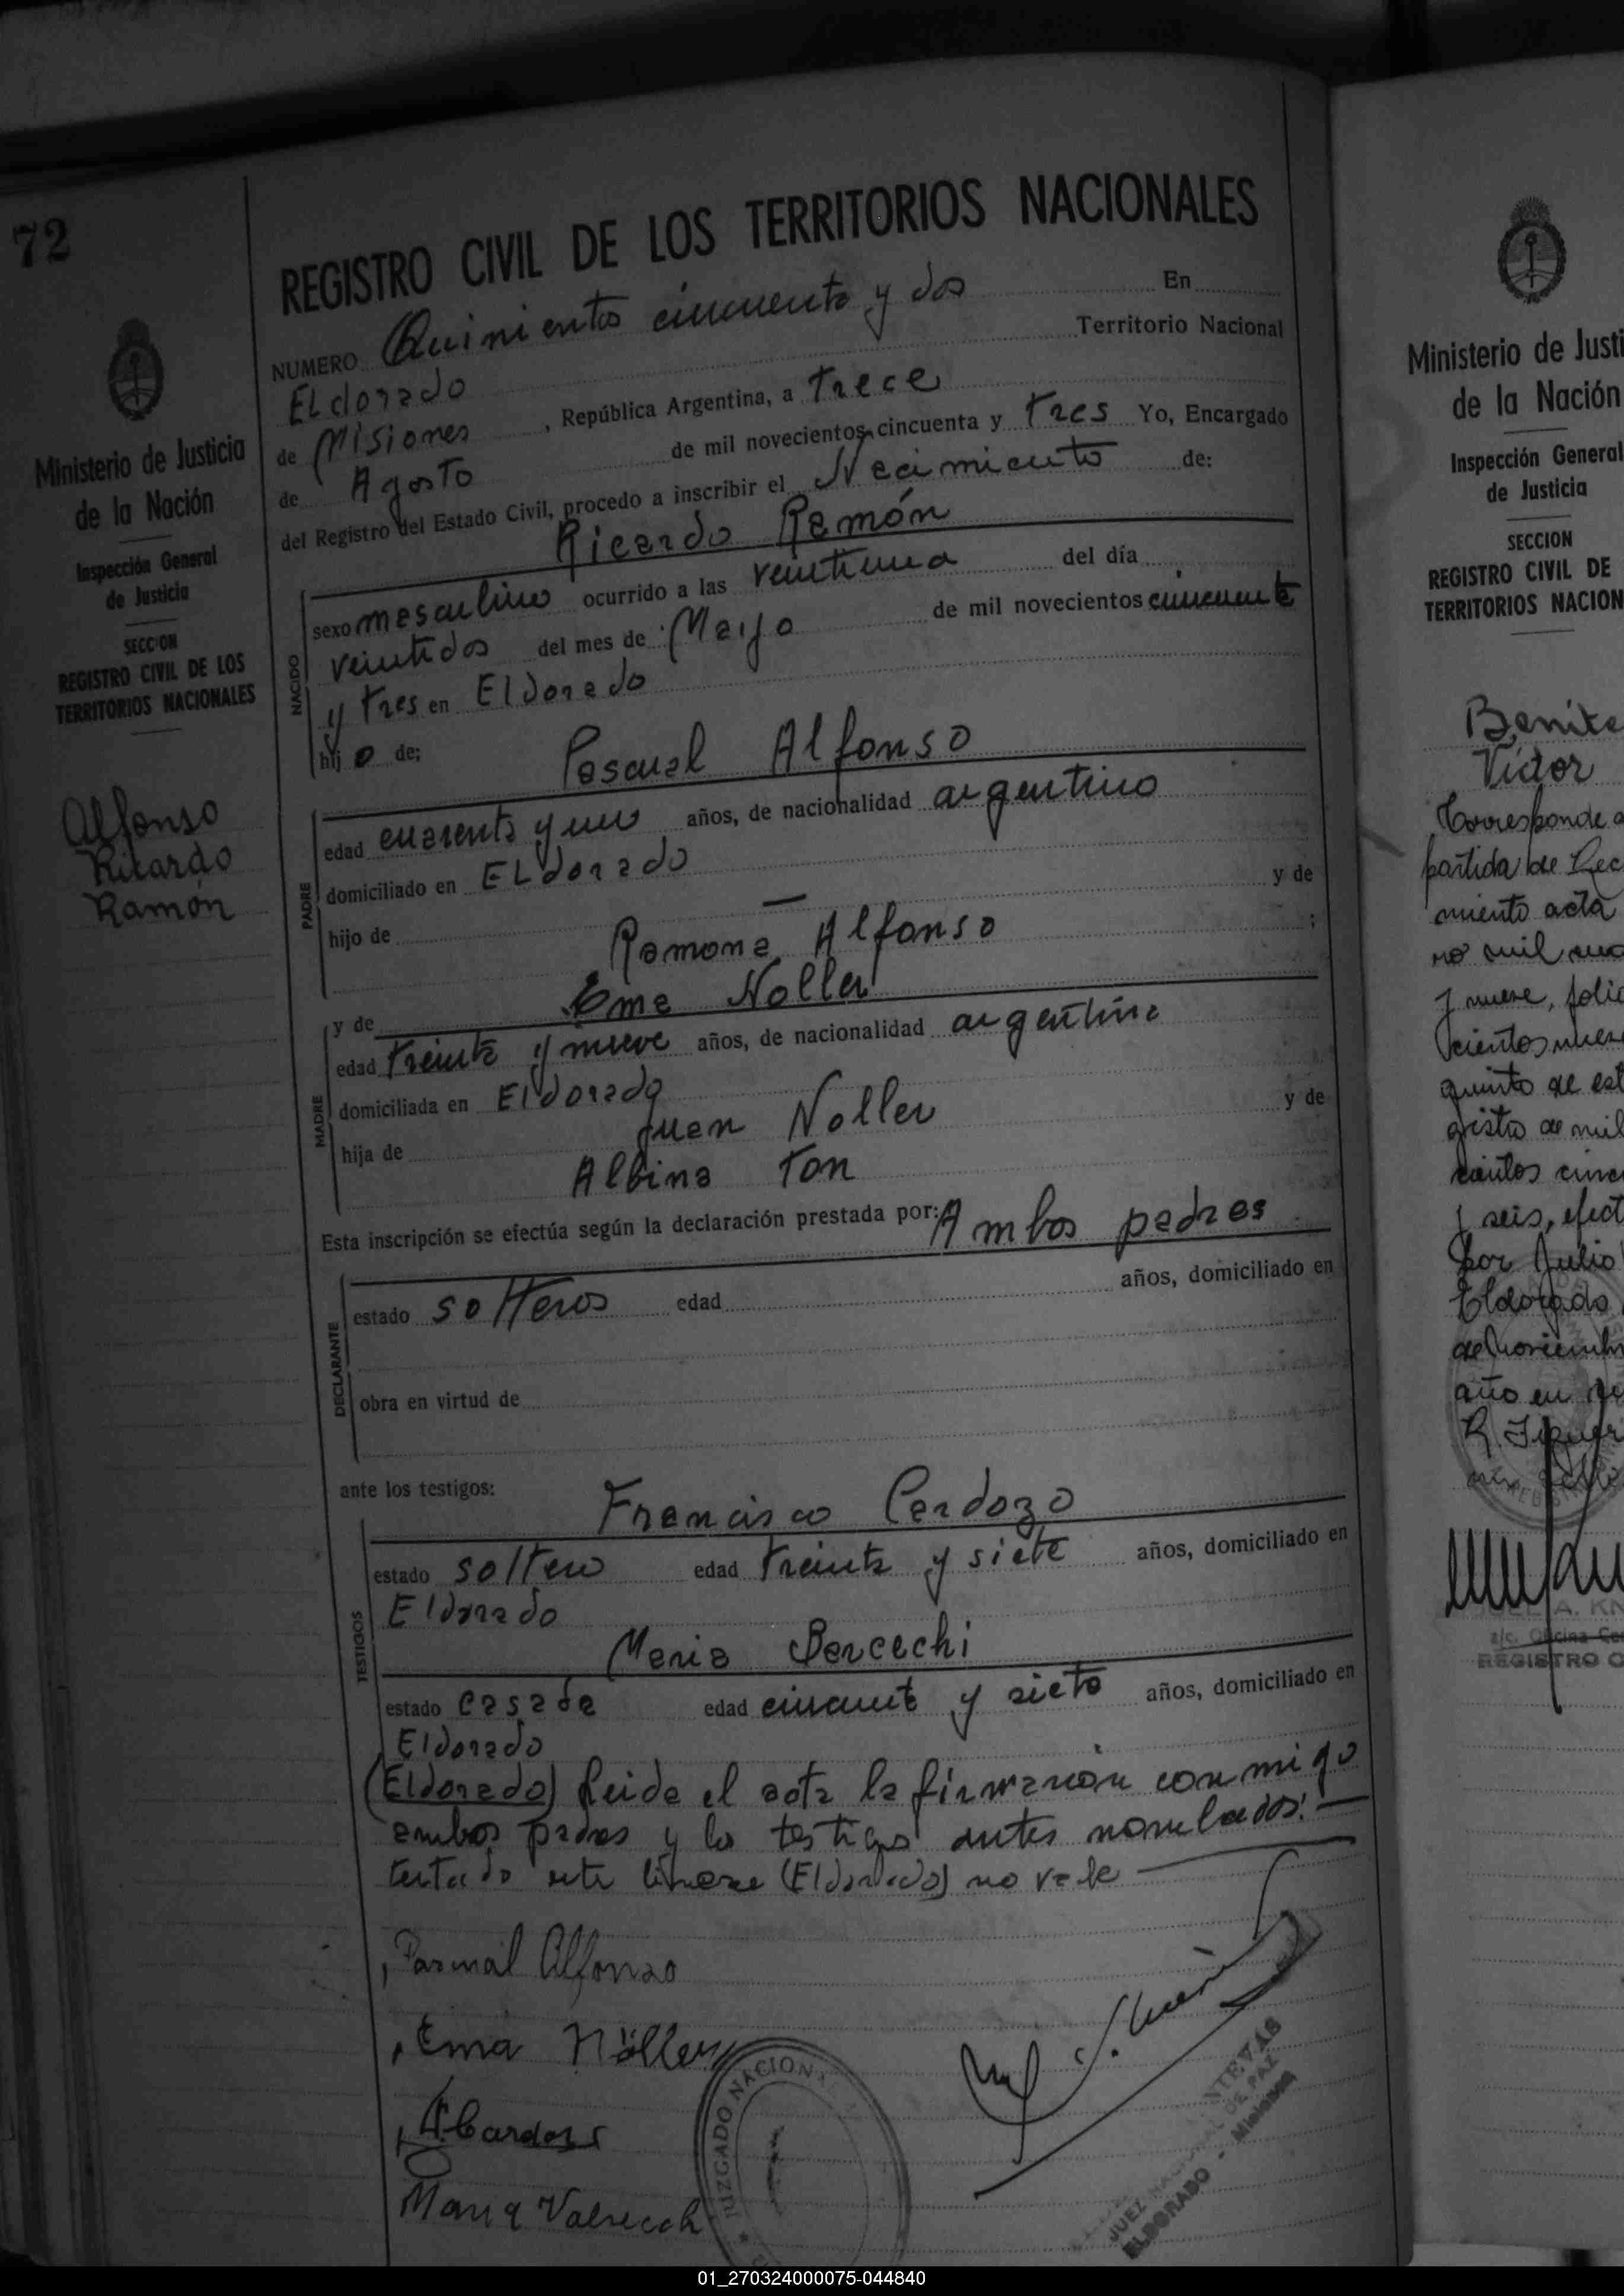 72
REGISTRO CIVIL DE LOS TERRITORIOS NACIONALES
Ministerio de Justicia
de la Nación
Inspección General
de Justicia
SECCION
REGISTRO CIVIL DE LOS
TERRITORIOS NACIONALES
Alfonso
Ricardo
Ramón
NUMERO Quinientos cincuenta y dos En
Eldorado Territorio Nacional
de Misiones, República Argentina, a trece
de Agosto de mil novecientos cincuenta y tres Yo, Encargado
del Registro del Estado Civil, procedo a inscribir el Nacimiento de:
Ricardo Ramón
NACIDO
sexo masculino ocurrido a las veintiuna del día
veintidos del mes de Mayo de mil novecientos cincuenta
y tres en Eldorado
hijo de;
Pascual Alfonso
PADRE
edad cuarenta y uno años, de nacionalidad argentino
domiciliado en Eldorado
hijo de — y de
Ramona Alfonso ;
y de Ema Noller
MADRE
edad treinta y nueve años, de nacionalidad argentina
domiciliada en Eldorado
hija de Juan Noller y de
Albina Ton
Esta inscripción se efectúa según la declaración prestada por: Ambos padres
DECLARANTE
estado solteros edad años, domiciliado en
obra en virtud de
ante los testigos:
Francisco Cardozo
TESTIGOS
estado soltero edad treinta y siete años, domiciliado en
Eldorado
Maria
estado casada edad cincuenta y siete años, domiciliado en
Eldorado
(Eldorado) Leida el acta la firmarón con migo
ambos padres y los testigos antes nombrados.—
testado entre lineas (Eldorado) no vale
Pascual Alfonso
Ema Nöller
Cardozo
Maria
JUZGADO NACIONAL
JUEZ NACIONAL DE PAZ
ELDORADO - Misiones
Ministerio de Justi
de la Nación
Inspección General
de Justicia
SECCION
REGISTRO CIVIL DE
TERRITORIOS NACION
Benite
Victor
Corresponde a
partida de Rec
miento acta
no mil
y nueve, folio
cientos nueve
quinto de est
gistro de mil
cientos cinc
y seis, efect
por Julio
Eldorado
de Noviembr
año en
A. KN
a/c. Oficina Cen
REGISTRO C
01_270324000075-044840